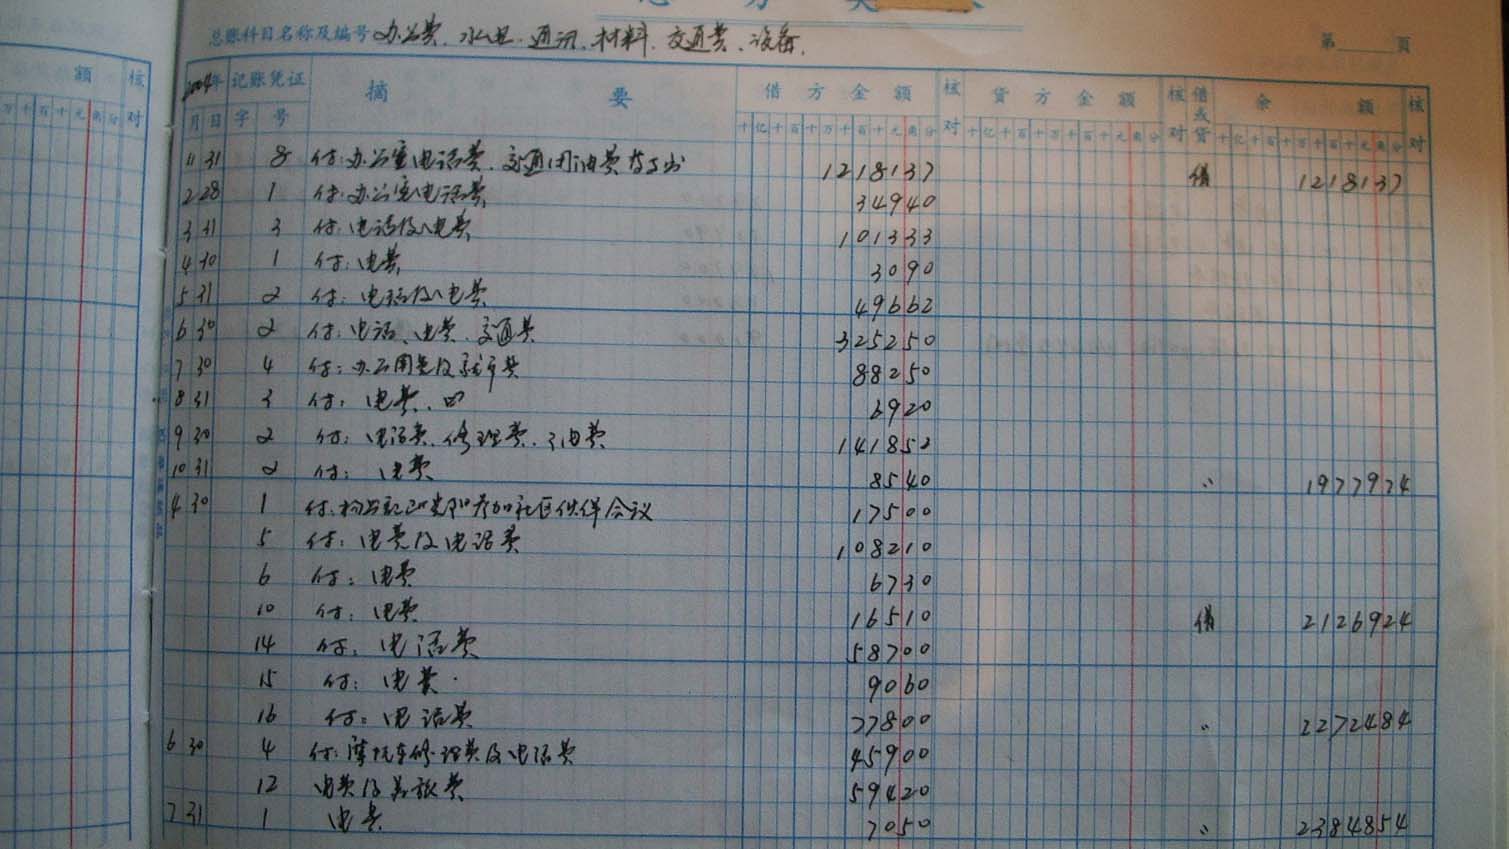 总账科目名称及编号 办公费、水电、通讯、材料、交通费、设备、
第 頁
额 核对
2004年 记账凭证 摘 要 借方金额 核对 贷方金额 核对 借或贷 余 额 核对
月 日 字 号 十亿千百十万千百十元角分 十亿千百十万千百十元角分 十亿千百十万千百十元角分
31 8 付:办公室电话费、交通用油费 1218137 借 1218137
2 28 1 付:办公室电话费 34940
3 31 3 付:电话及电费 101333
4 30 1 付:电费 3090
5 31 2 付:电话及电费 49662
6 30 2 付:电话、电费、交通费 325250
7 30 4 付:办公用 及 费 88250
8 31 3 付:电费 6920
9 30 2 付:电话费、修理费、油费 141852
10 31 2 付:电费 8540 〃 1977974
4 30 1 付: 参加社区伙伴会议 17500
5 付:电费及电话费 108210
6 付:电费 6730
10 付:电费 16510 借 2126924
14 付:电话费 58700
15 付:电费 9060
16 付:电话费 77800 〃 2272484
6 30 4 付:摩托车修理费及电话费 45900
12 电费及差旅费 59420
7 31 1 电费 7050 〃 2384854